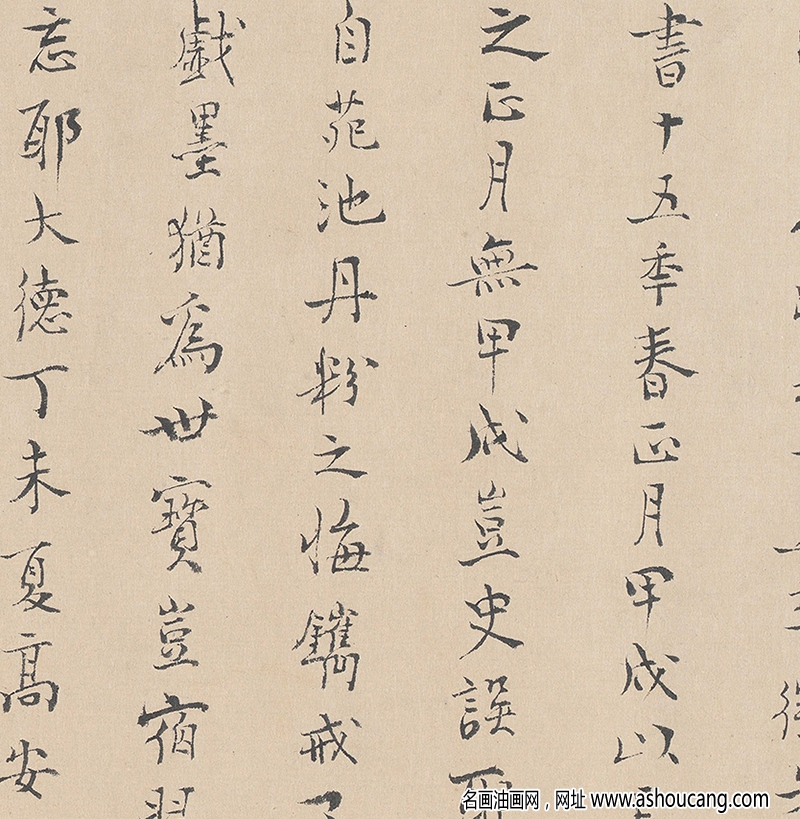 書十五季春正月甲戌以
之正月無甲戌豈史誤耶
自苑池丹粉之悔鐫戒子
戲墨猶為世寶豈宿習
忘耶大德丁未夏高安
名画油画网，网址 www.ashoucang.com